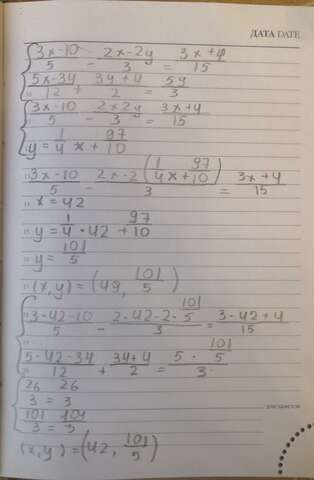 ДАТА DATE
{ (3x-10)/5 - (2x-2y)/3 = (3x+4)/15
(5x-34)/12 + (3y+4)/2 = 5y/3
{ (3x-10)/5 - (2x2y)/3 = (3x+4)/15
y = 1/4 x + 97/10
(3x-10)/5 - (2x-2(1/4 x + 97/10))/3 = (3x+4)/15
x = 42
y = 1/4 · 42 + 97/10
y = 101/5
(x,y) = (49, 101/5)
{ (3-42-10)/5 - (2·42-2·101/5)/3 = (3-42+4)/15
(5·42-34)/12 + (34+4)/2 = (5·101/5)/3
{ 26/3 = 26/3
101/3 = 101/3
(x,y) = (42, 101/5)